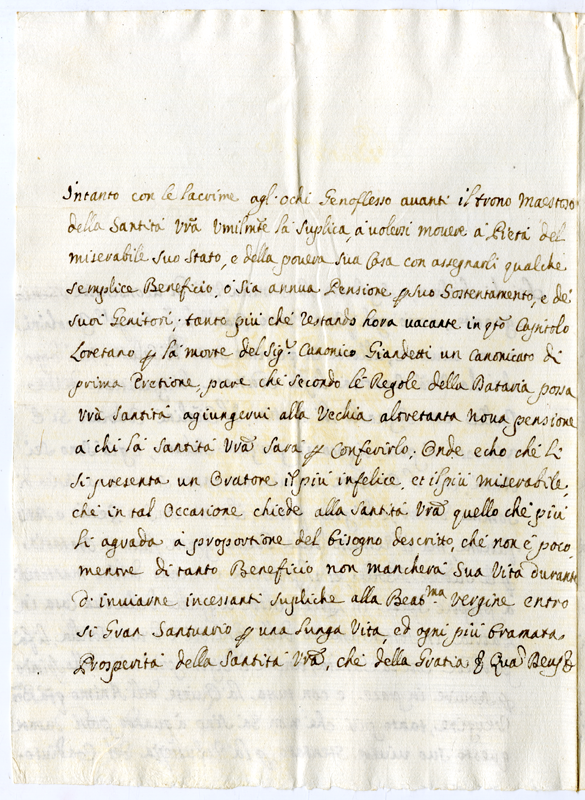 Intanto con le lacrime agl'ochi Genoflesso auanti il trono Maestoso
della Santità Vrã Umilmte la suplica, à volersi mouere à Pietà del
miserabile suo stato, e della pouera sua Casa con assegnarli qualche
semplice Beneficio, ò sia annua Pensione p suo Sostentamento, e de
suoi Genitori: tanto più che restando hora vacante in qto Capitolo
Loretano p la morte del Sigr Canonico Giandetti un Canonicato di
prima Eretione, pare che secondo le Regole della Dataria possa
Vrã Santità agiungerui alla Vechia altretanta noua pensione
à chi la Santità Vrã sarà p Conferirlo; Onde echo che li
si presenta un Oratore il più infelice, et il più miserabile,
che in tal Occasione chiede alla Santità Vrã quello che più
li agrada à proportione del bisogno descrito, che non è poco,
mentre di tanto Beneficio non mancherà sua Vita durante
d'inuiarne incessanti supliche alla Beatma Vergine entro
si Gran Santuario p una lunga Vita, ed ogni più bramata
Prosperità della Santità Vrã, che della Gratia &c Quã Deus &c